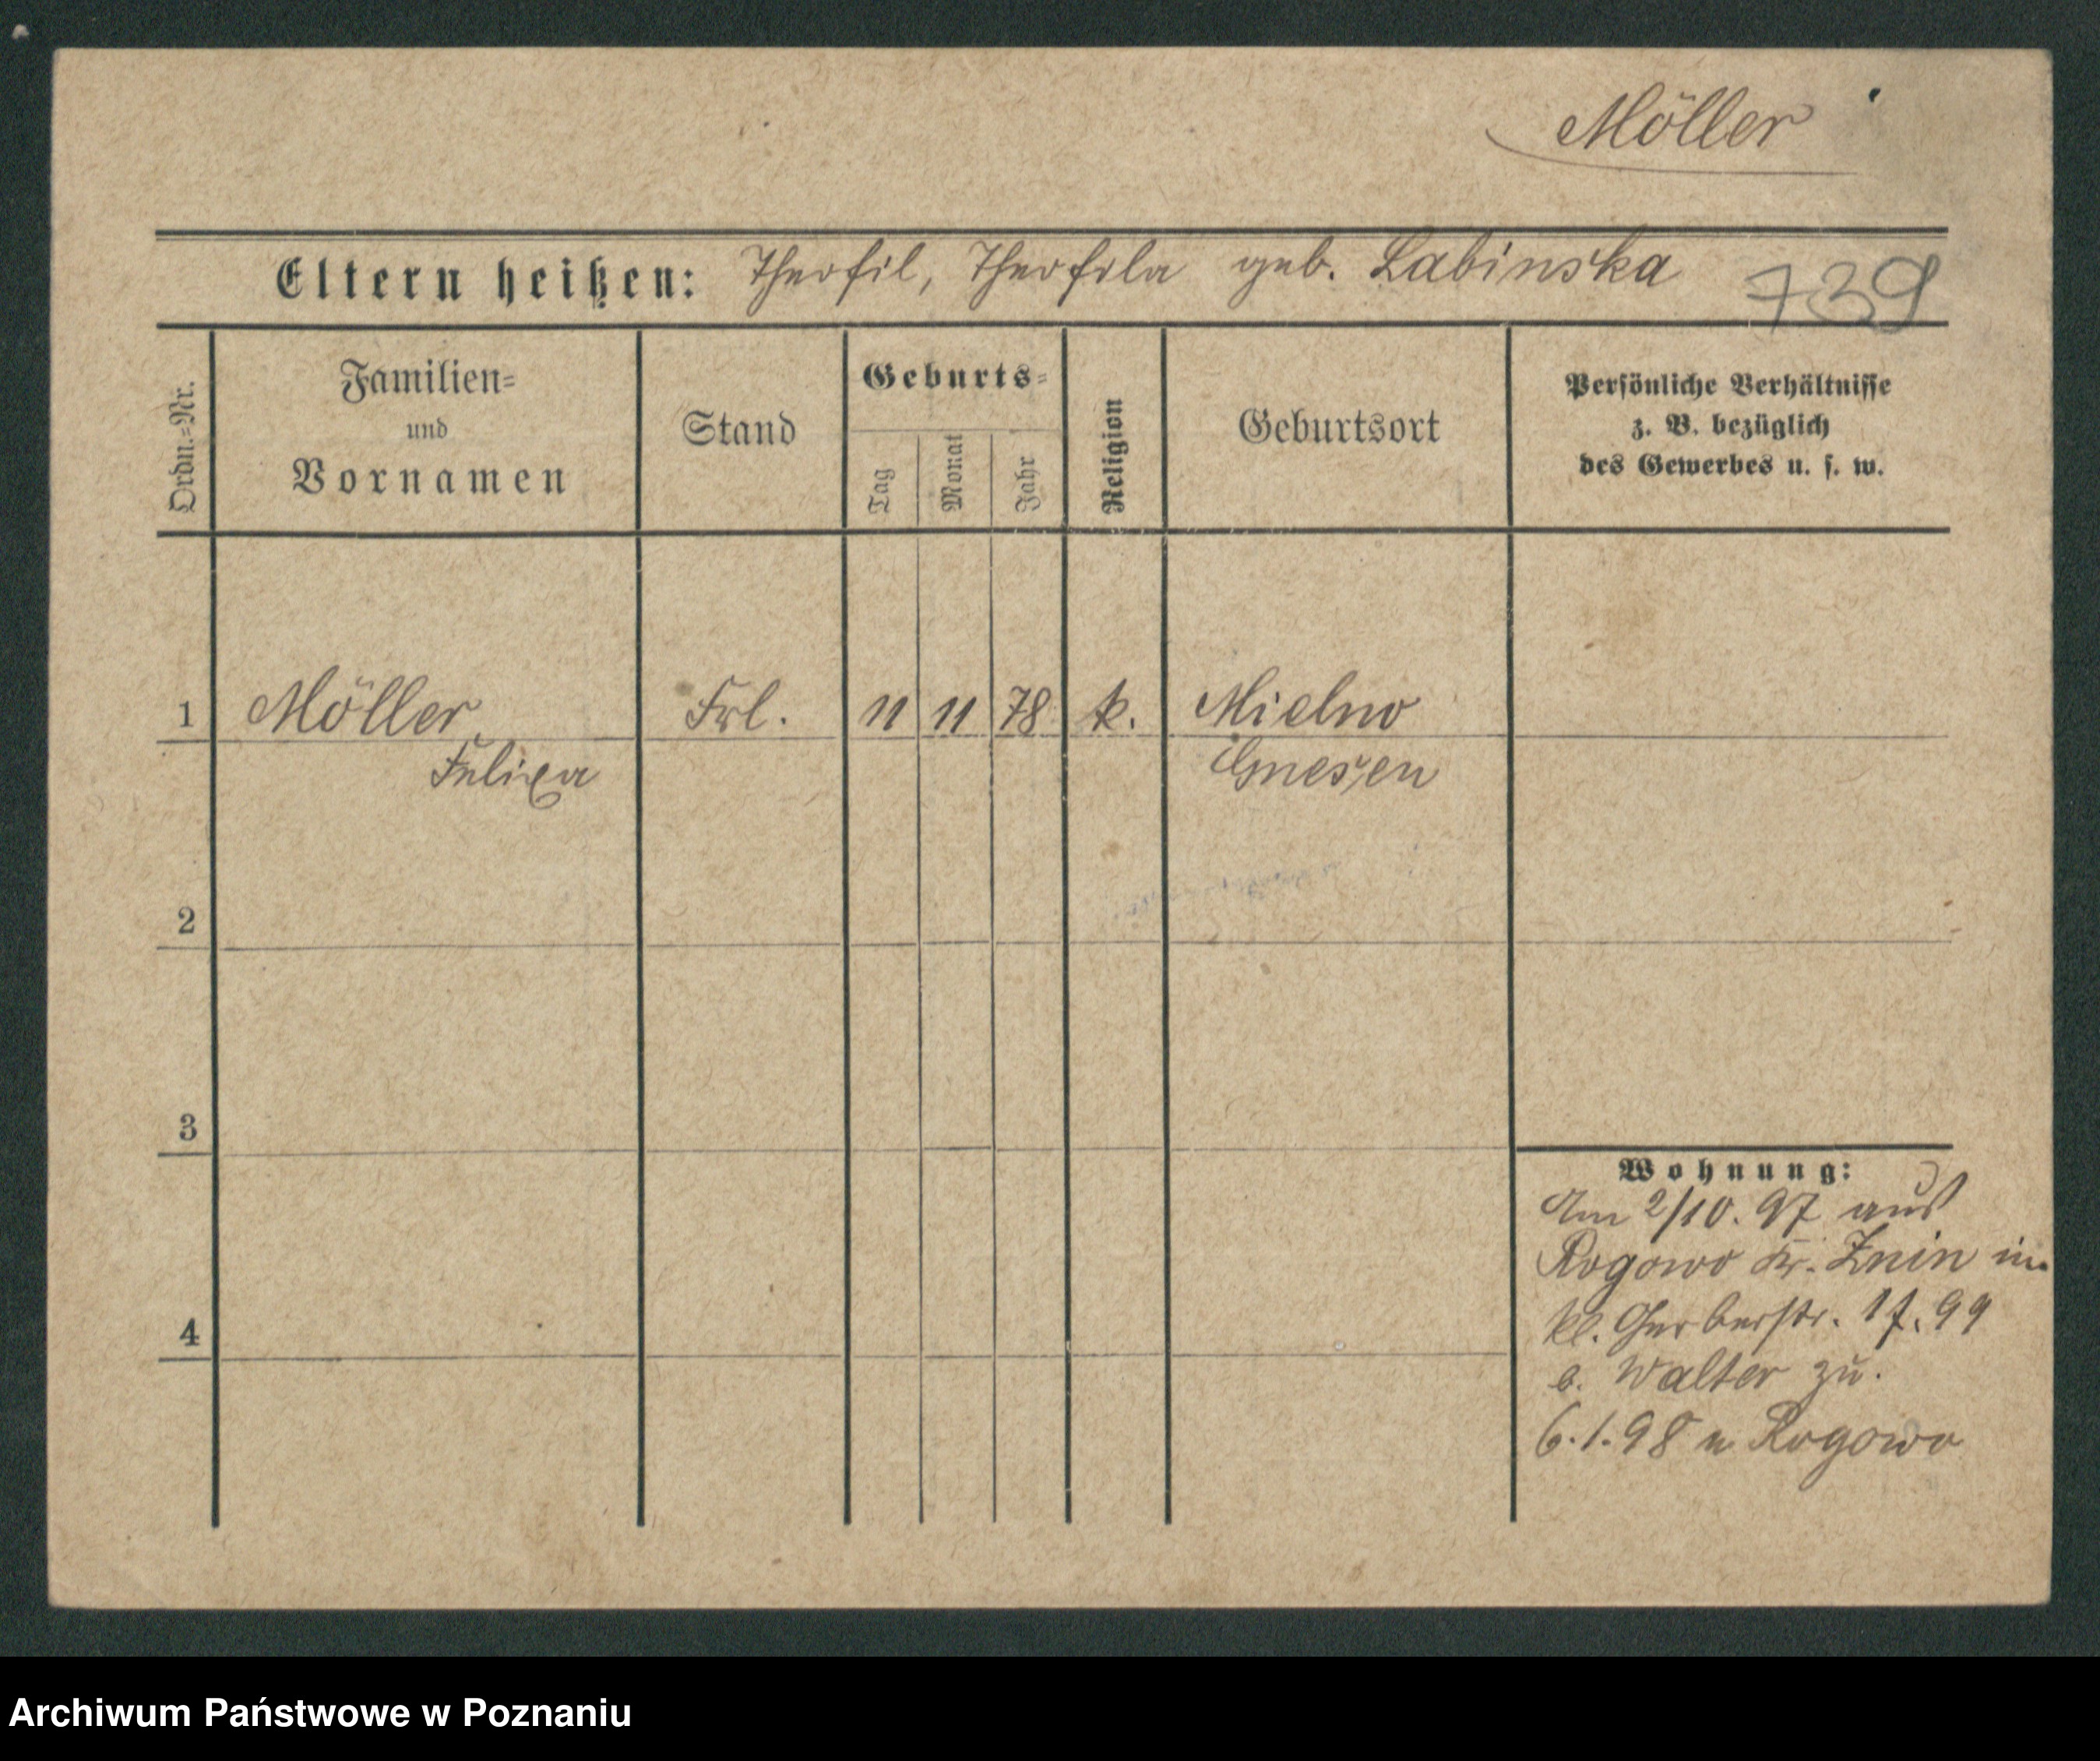 Möller
Eltern heißen: Theofil, Theofila geb. Labinska 739
Ordn.=Nr.
Familien=
und
Vornamen
Stand
Geburts=
Tag
Monat
Jahr
Religion
Geburtsort
Persönliche Verhältnisse
z. B. bezüglich
des Gewerbes u. s. w.
1 Möller Frl. 11 11 78 k. Mielno
Felixa Gnesen
2
3
4
Wohnung:
Am 2/10. 97 aus
Rogowo Kr. Znin in
kl. Gerberstr. 99
b. Walter zu.
6.1.98 n Rogowo
Archiwum Państwowe w Poznaniu